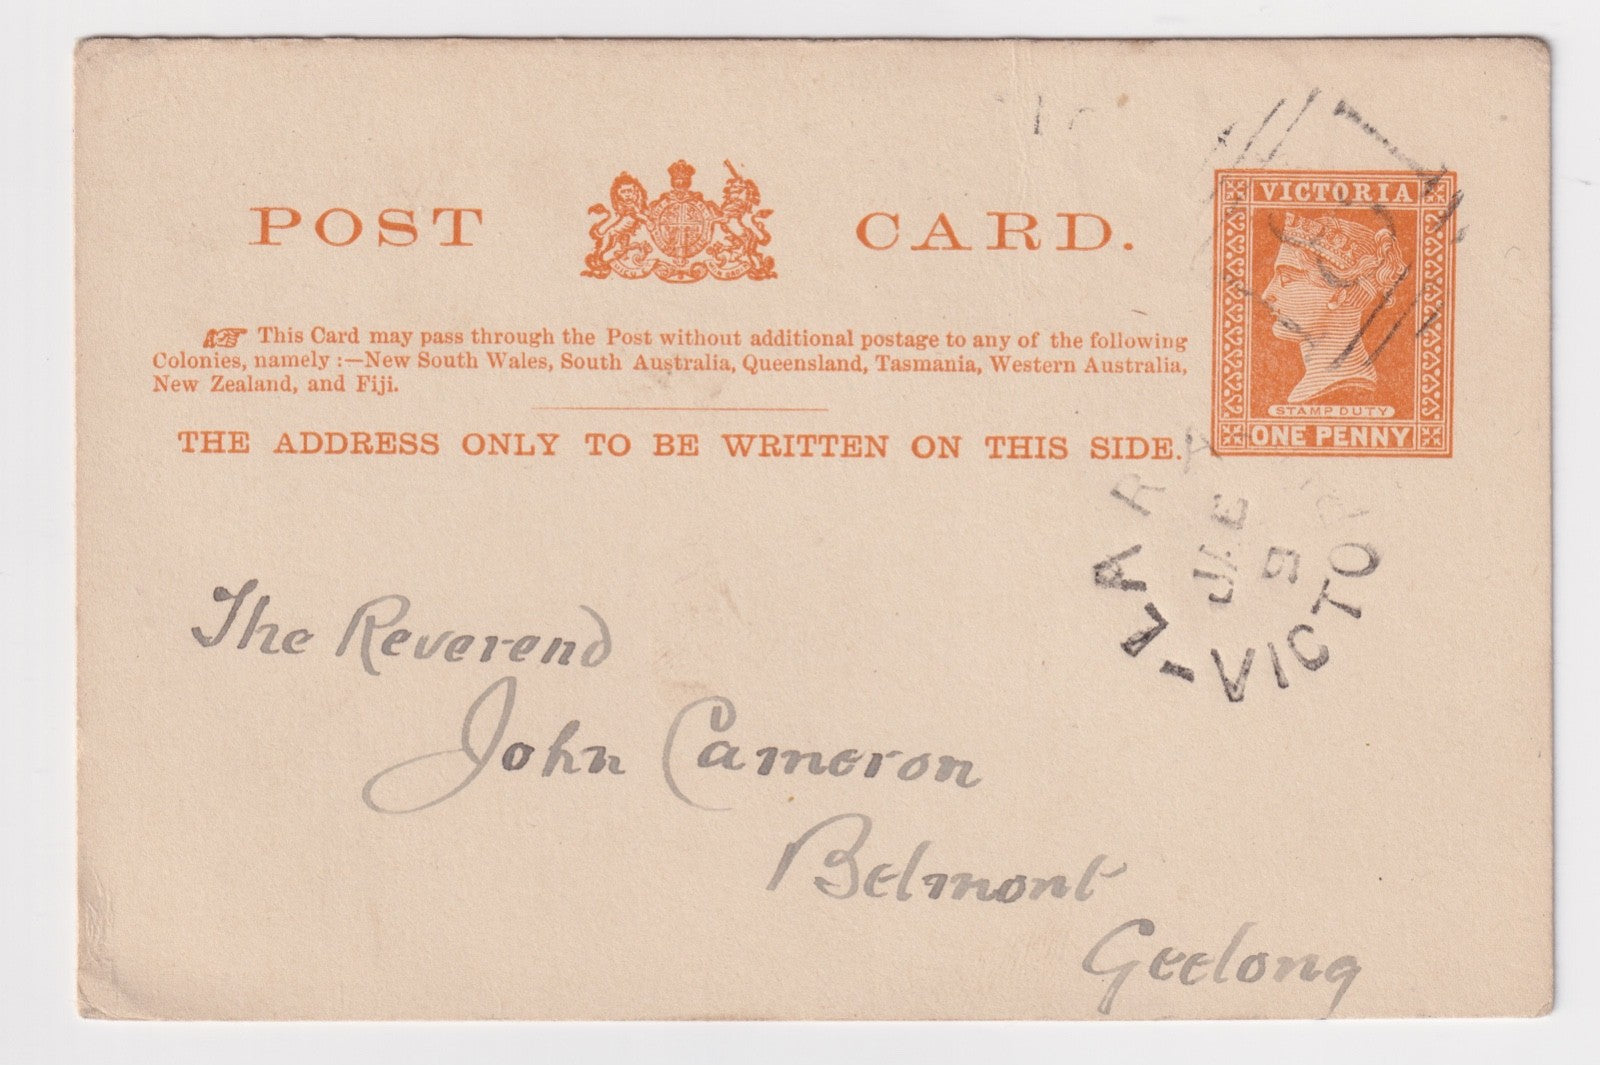 POST CARD.
VICTORIA
☞ This Card may pass through the Post without additional postage to any of the following
Colonies, namely :—New South Wales, South Australia, Queensland, Tasmania, Western Australia,
New Zealand, and Fiji.
STAMP DUTY
ONE PENNY
THE ADDRESS ONLY TO BE WRITTEN ON THIS SIDE.
VICTOR
The Reverend
John Cameron
Belmont
Geelong